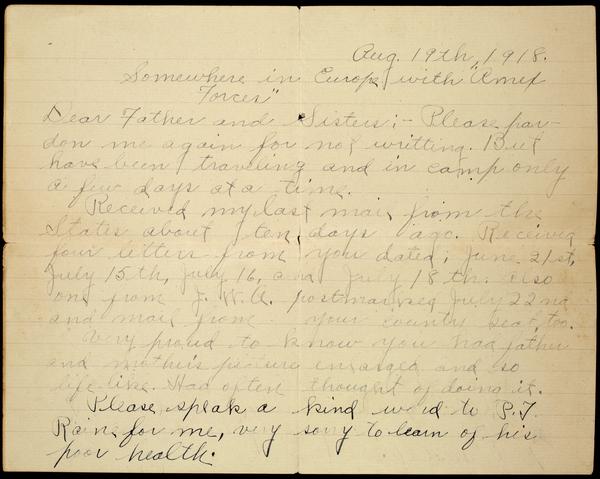 Aug. 19th, 1918.
Somewhere in Europe, with "Amex
Forces"
Dear Father and Sisters;- Please par-
don me again for not writting. But
have been traveling and in camp only
a few days at a time.
Received my last mail from the
States about ten days ago. Received
four letters from you dated; June 21st,
July 15th, July 16, and July 18th. Also
one from J. W. A. postmarked July 22nd
and mail from your county seat, too.
Very proud to know you had father
and mother's picture enlarged and so
life-like. Had often thought of doing it.
Please speak a kind word to P.T.
Rains for me, very sorry to learn of his
poor health.